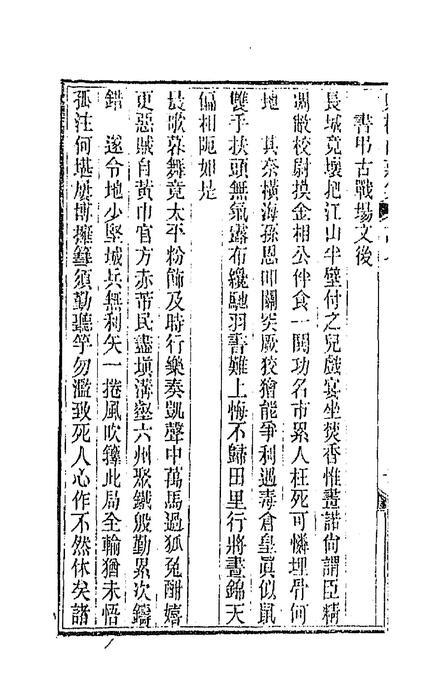 書弔古戰場文後
長城竟壞把江山半壁付之兒戲宴坐焚香惟畫諾尚謂臣精
凋敝校尉摸金相公伴食一閧功名市累人枉死可憐埋骨何
地　其奈橫海孫恩叩關突厥狡獪能爭利遇毒倉皇眞似鼠
雙手扶頭無氣露布纔馳羽書難上悔不歸田里行將晝錦天
偏相阨如是
晨歌暮舞竟太平粉飾及時行樂奏凱聲中萬馬過狐兔酣嬉
更惡賊自黃巾官方赤芾民盡塡溝壑六州聚鐵毀勤累次鑄
錯　遂令地少堅城兵無利矢一捲風吹籜此局全輸猶未悟
孤注何堪屢博擁篲須勤聽竽勿濫致死人心作不然休矣諸